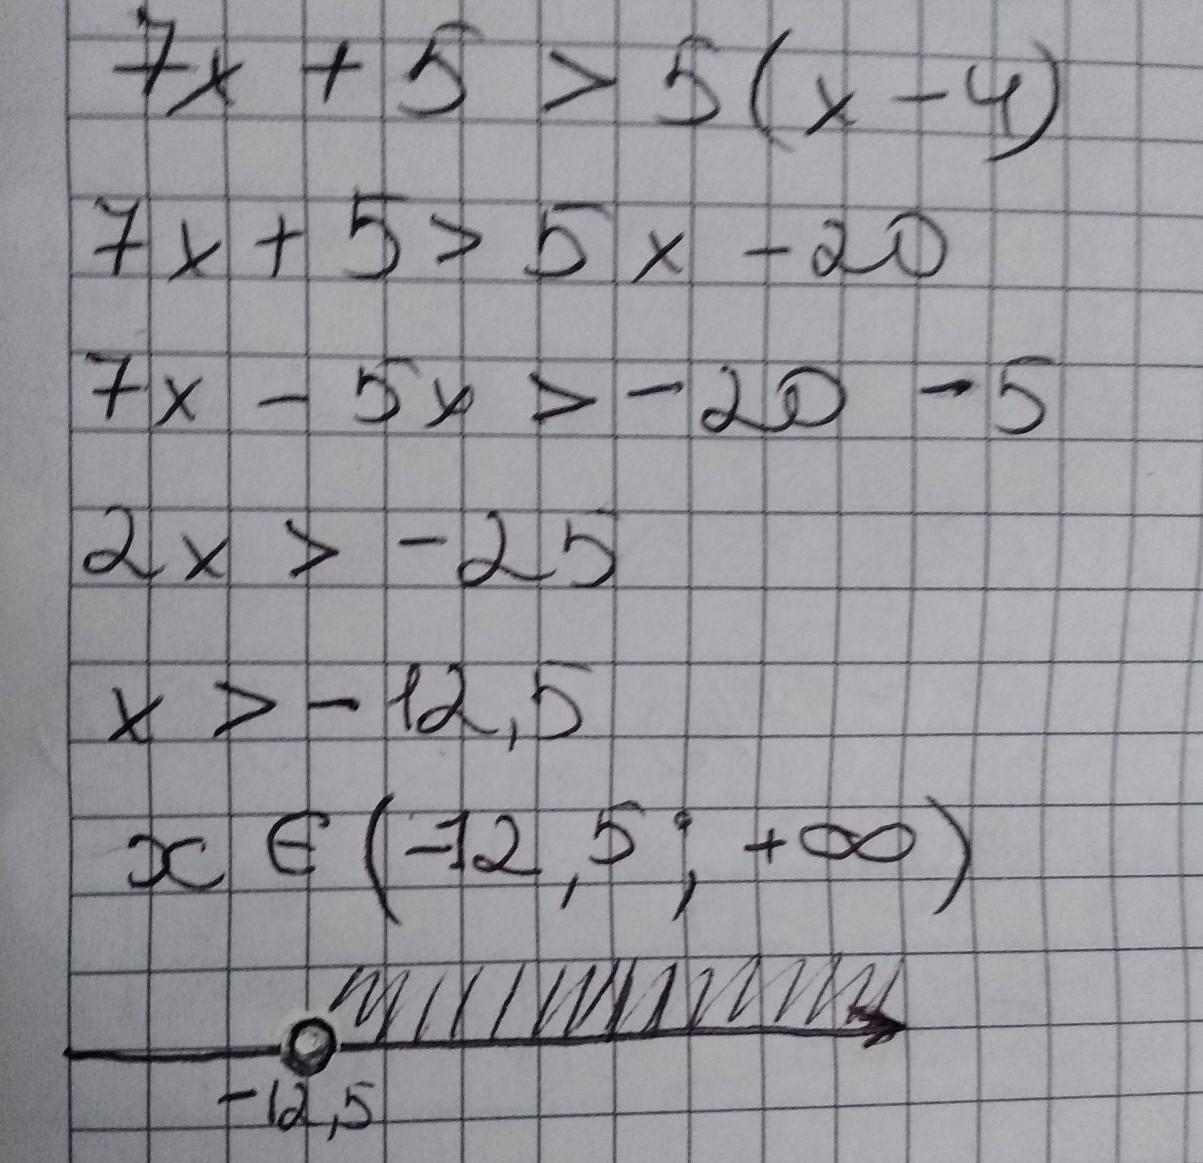 7x + 5 > 5(x - 4)
7x + 5 > 5x - 20
7x - 5x > -20 - 5
2x > -25
x > -12,5
x ∈ (-12,5; +∞)
-12,5